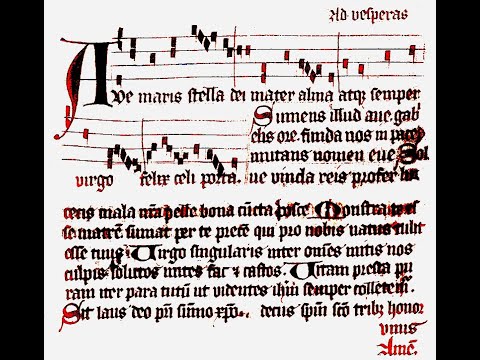 Ad vesperas
Ave maris stella dei mater alma atqꝫ semper
Sumens illud aue gab
elis ore. funda nos in pace
mutans nomen eue Sol
virgo felix celi porta. ue vincla reis profer lu
cens mala nr̄a pelle bona cūcta posce Monstra te es
se matrē sumat per te prece qui pro nobis natus tulit
esse tuus Virgo singularis inter om̄es mitis nos
culpis solutos mites fac & castos Vitam presta pu
ram iter para tutū ut videntes ih̄m semper colletem
Sit laus deo pri sūmo xp̄o. decus spiri scō tribꝫ honor
vnus
Amē.